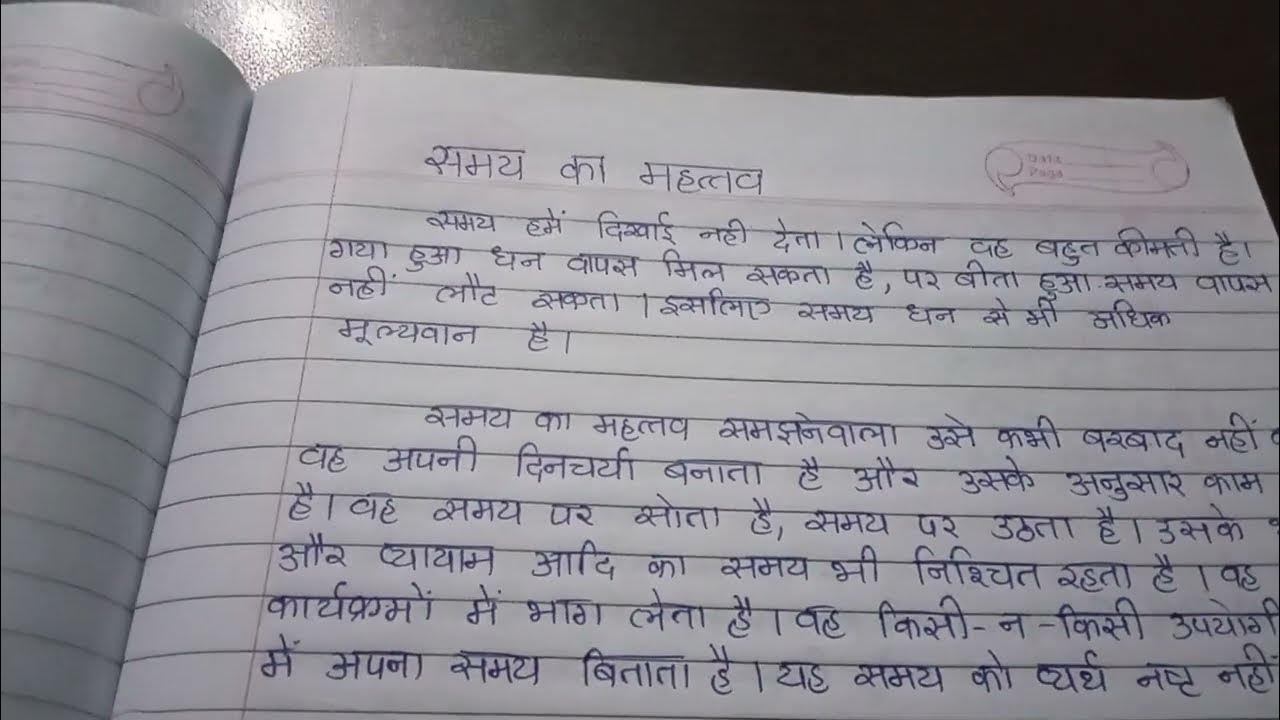 Date
Page
समय का महत्तव
समय हमें दिखाई नही देता। लेकिन वह बहुत कीमती है।
गया हुआ धन वापस मिल सकता है, पर बीता हुआ समय वापस
नहीं लौट सकता। इसलिए समय धन से भी अधिक
मूल्यवान है।
समय का महत्तव समझनेवाला उसे कभी बरबाद नहीं
वह अपनी दिनचर्या बनाता है और उसके अनुसार काम
है। वह समय पर सोता है, समय पर उठता है। उसके
और व्यायाम आदि का समय भी निश्चित रहता है। वह
कार्यक्रमों में भाग लेता है। वह किसी-न-किसी उपयोगी
में अपना समय बिताता है। यह समय को व्यर्थ नष्ट नहीं